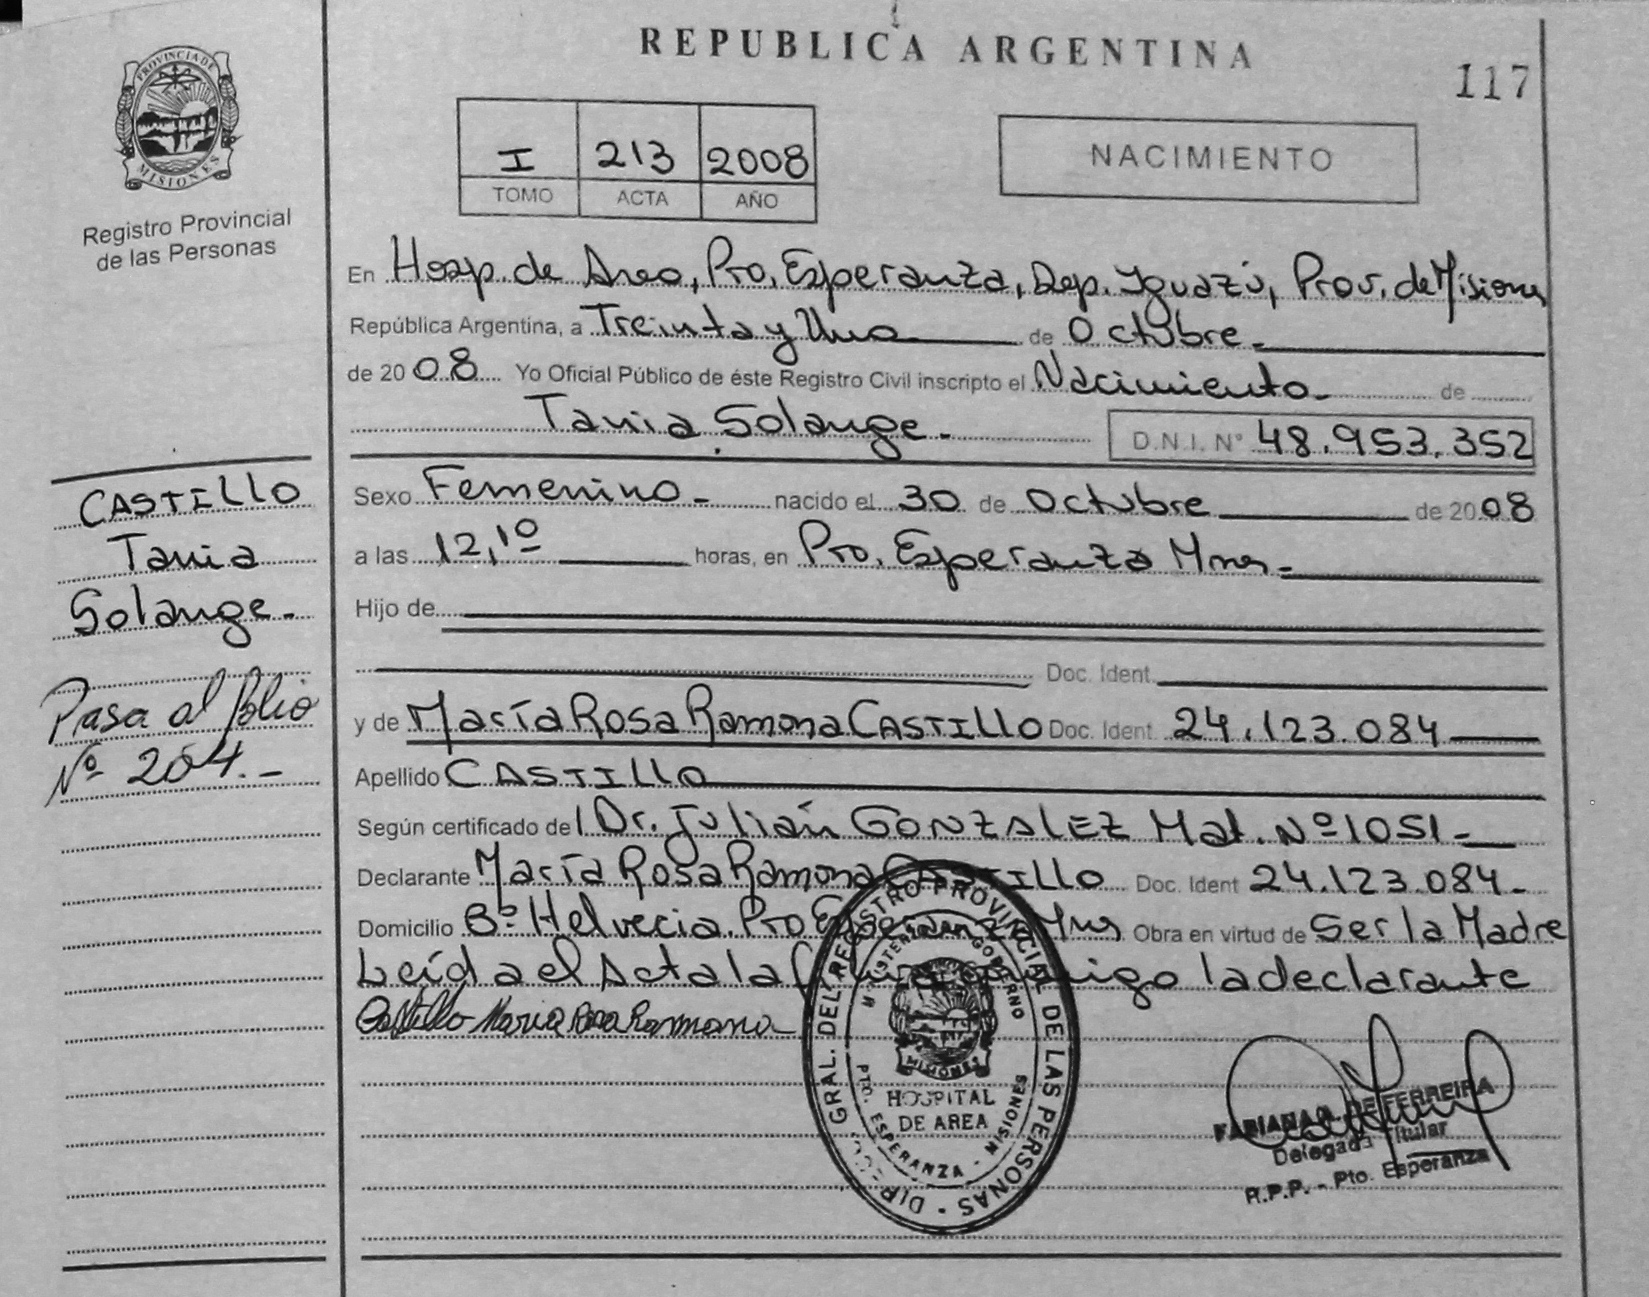 REPUBLICA ARGENTINA
117
PROVINCIA DE MISIONES
Registro Provincial
de las Personas
I 213 2008
TOMO ACTA AÑO
NACIMIENTO
En Hosp. de Area, Pto. Esperanza, Dep. Iguazú, Prov. de Misiones
República Argentina, a Treinta y Uno de Octubre.
de 2008 Yo Oficial Público de éste Registro Civil inscripto el Nacimiento de
Tania Solange. D.N.I. N° 48.953.352
Sexo Femenino nacido el 30 de Octubre de 2008
a las 12,10 horas, en Pto. Esperanza Mnes.
Hijo de
Doc. Ident.
y de María Rosa Ramona CASTILLO Doc. Ident. 24.123.084
Apellido CASTILLO
Según certificado del Dr. Julián GONZALEZ Mat. Nº 1051
Declarante María Rosa Ramona CASTILLO Doc. Ident 24.123.084.
Domicilio Bº Helvecia. Pto Esperanza Mnes Obra en virtud de Ser la Madre
Leída el Acta la conmigo la declarante
Castillo Maria Rosa Ramona
CASTILLO
Tania
Solange.
Pasa al folio
Nº 204.-
GRAL. DEL REGISTRO PROVINCIAL DE LAS PERSONAS
MINISTERIO DE GOBIERNO
MISIONES
HOSPITAL
DE AREA
PTO. ESPERANZA - MISIONES
DE FERREIRA
Delegada Titular
R.P.P. - Pto. Esperanza